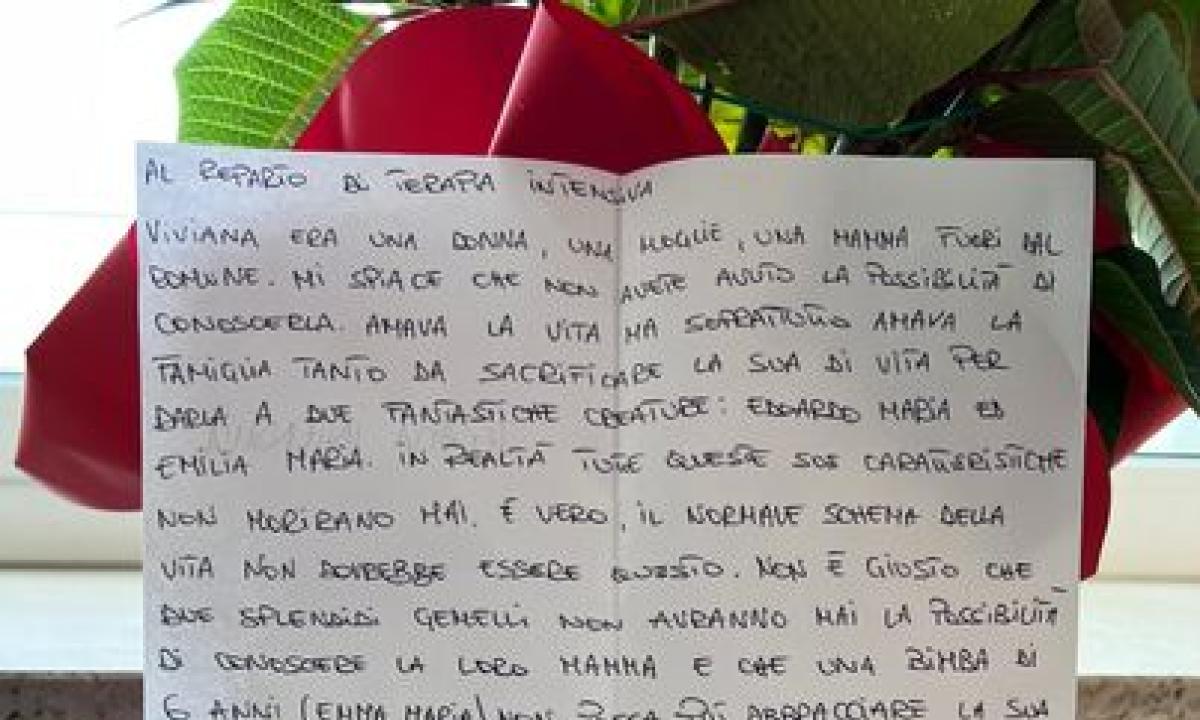 AL REPARTO DI TERAPIA INTENSIVA
VIVIANA ERA UNA DONNA, UNA MOGLIE, UNA MAMMA FUORI DAL
COMUNE. MI SPIACE CHE NON AVETE AVUTO LA POSSIBILITÀ DI
CONOSCERLA. AMAVA LA VITA MA SOPRATTUTTO AMAVA LA
FAMIGLIA TANTO DA SACRIFICARE LA SUA DI VITA PER
DARLA A DUE FANTASTICHE CREATURE: EDOARDO MARIA ED
EMILIA MARIA. IN REALTÀ TUTE QUESTE SUE CARATTERISTICHE
NON MORIRANO MAI. È VERO, IL NORMALE SCHEMA DELLA
VITA NON DOVREBBE ESSERE QUESTO. NON È GIUSTO CHE
DUE SPLENDIDI GEMELLI NON AVRANNO MAI LA POSSIBILITÀ
DI CONOSCERE LA LORO MAMMA E CHE UNA BIMBA DI
6 ANNI (EMMA MARIA) NON ABBRACCIARE LA SUA